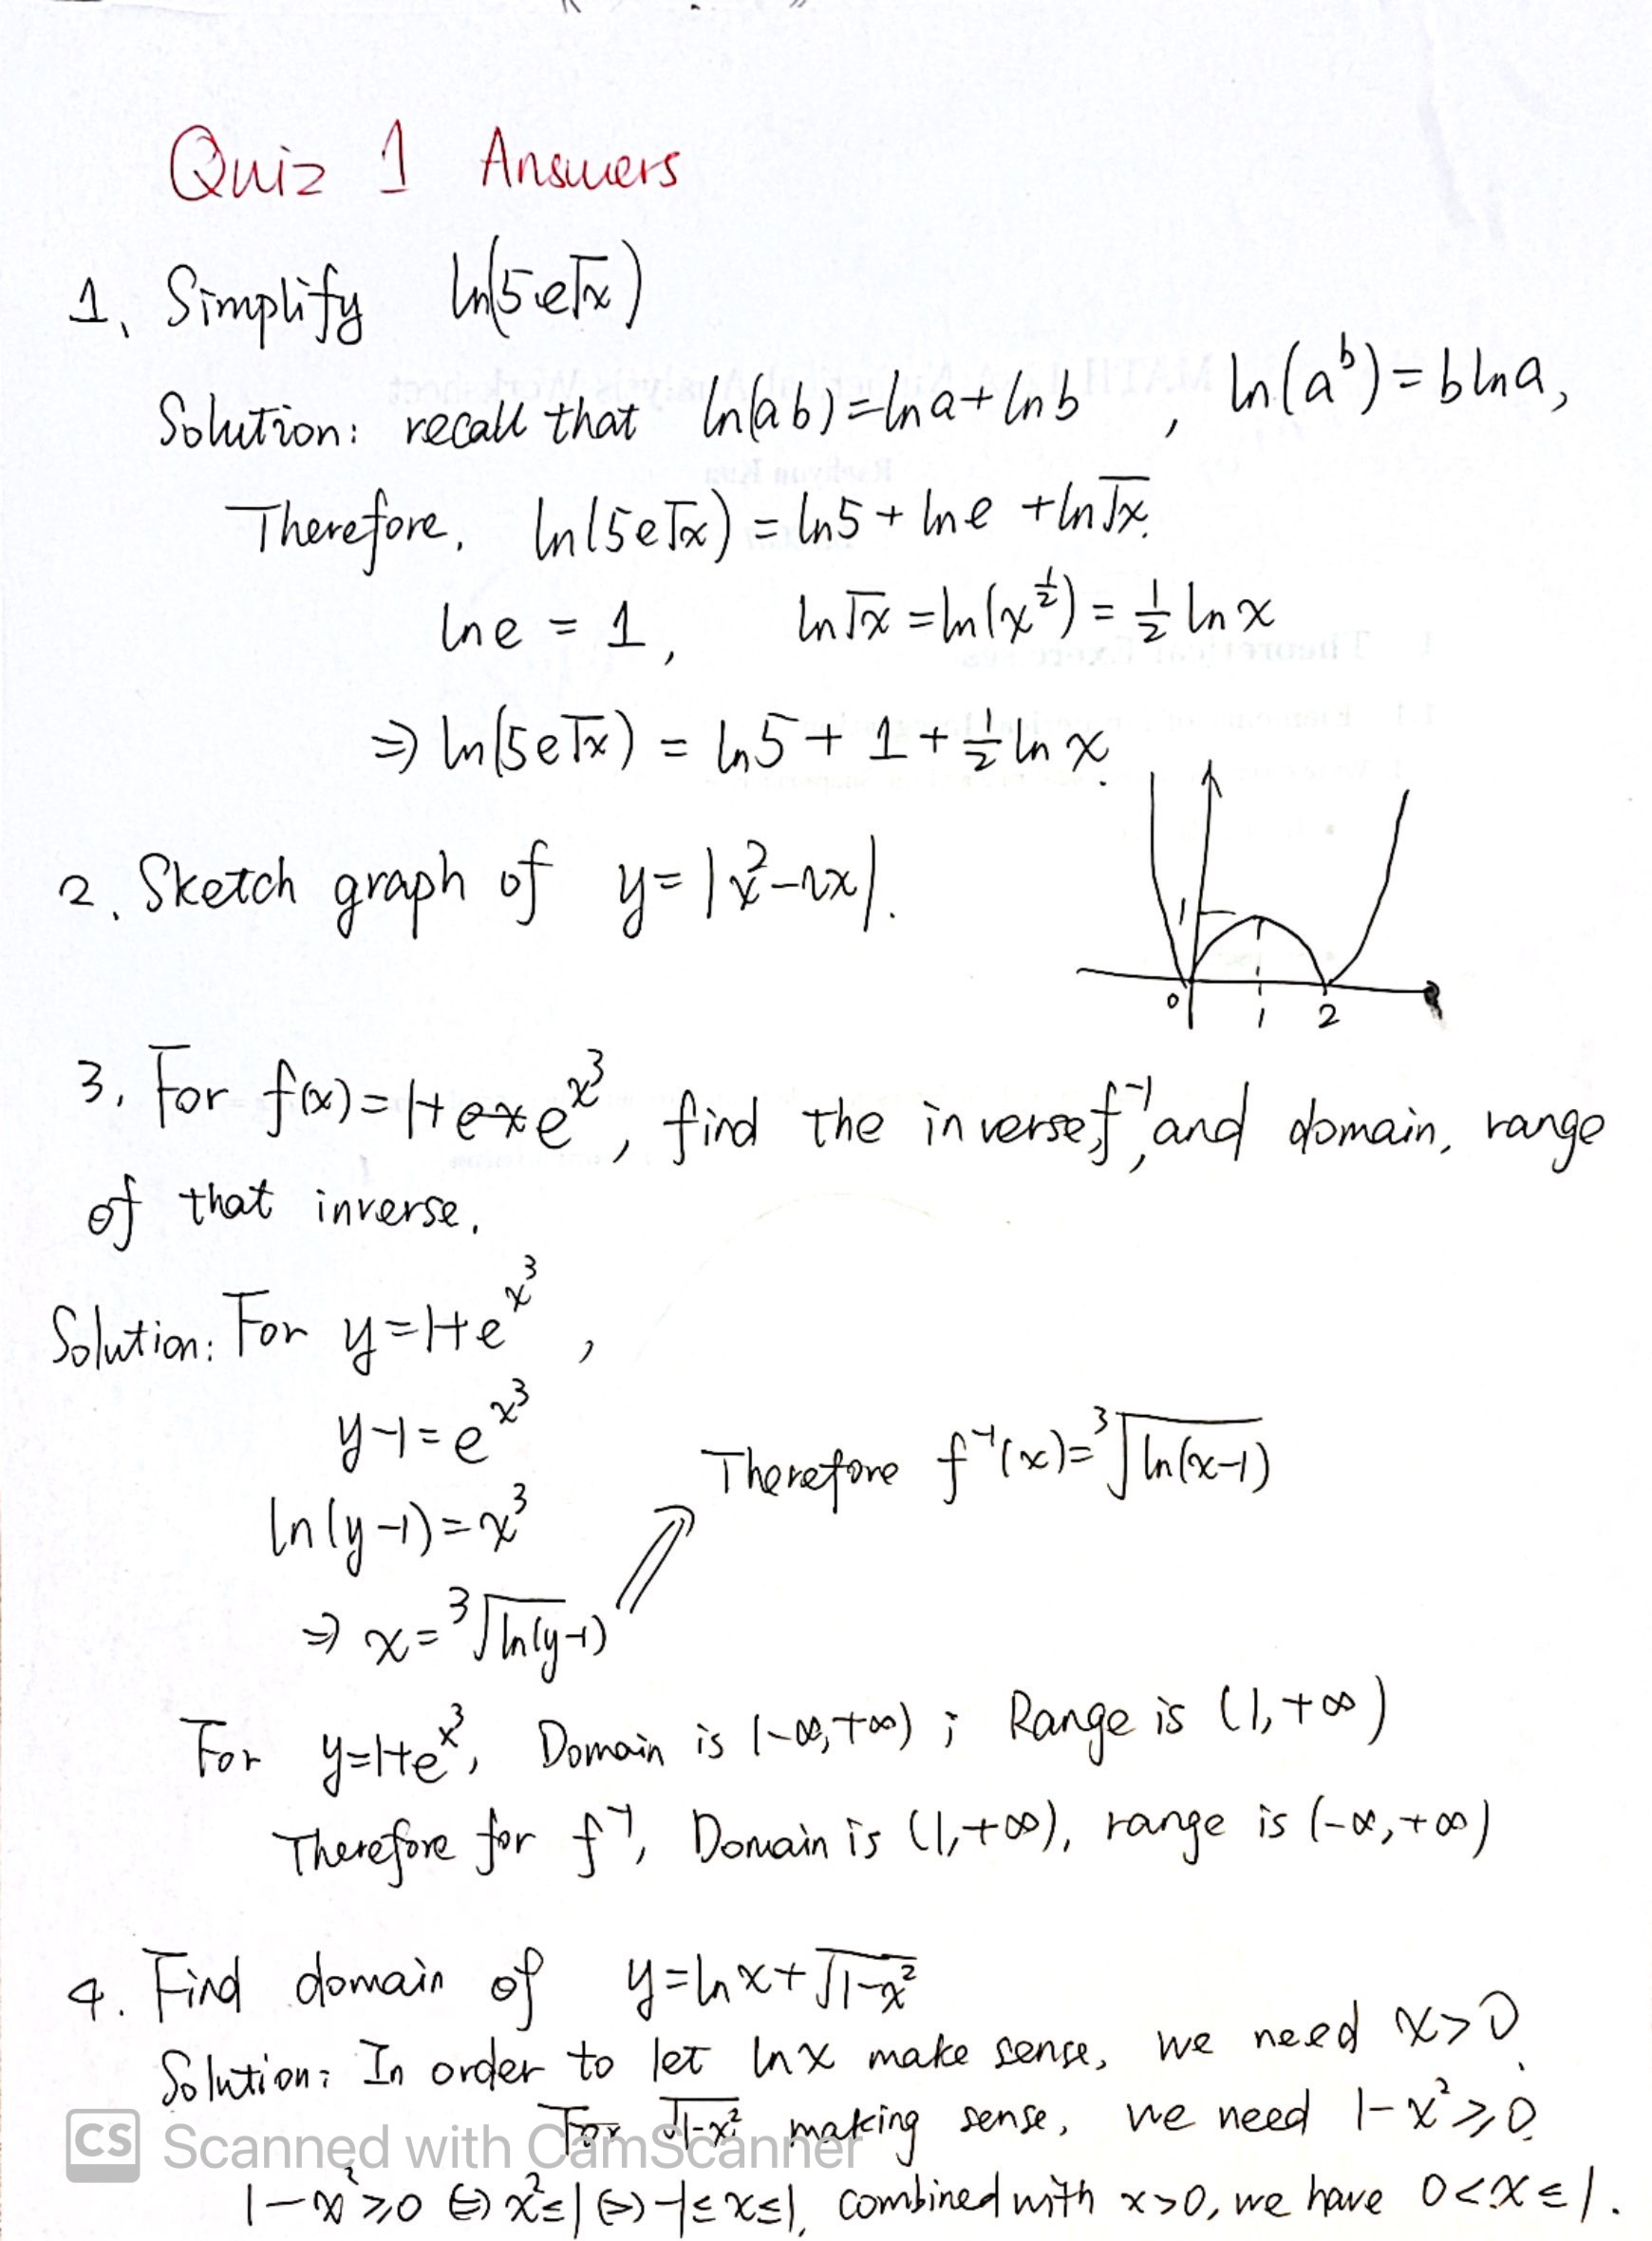 Quiz 1 Answers
1. Simplify ln(5e√x)
Solution: recall that ln(ab)=lna+lnb , ln(a^b)=blna,
Therefore, ln(5e√x) = ln5 + lne +ln√x.
lne = 1, ln√x =ln(x^½) = ½ lnx
⇒ ln(5e√x) = ln5 + 1 + ½ ln x.
2. Sketch graph of y=|x²-2x|.
1
0 1 2
3. For f(x)=1+e^x³, find the inverse f⁻¹, and domain, range
of that inverse.
Solution: For y=1+e^x³,
y-1=e^x³
ln(y-1)=x³
⇒ x=³√ln(y-1)
Therefore f⁻¹(x)=³√ln(x-1)
For y=1+e^x³, Domain is (-∞,+∞) ; Range is (1,+∞)
Therefore for f⁻¹, Domain is (1,+∞), range is (-∞,+∞)
4. Find domain of y=lnx+√1-x²
Solution: In order to let lnx make sense, we need x>0.
For √1-x² making sense, we need 1-x²≥0.
CS Scanned with CamScanner
1-x²≥0 ⇔ x²≤1 ⇔ -1≤x≤1, combined with x>0, we have 0<x≤1.